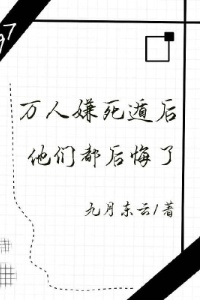 万人嫌死遁后
他们都后悔了
九月东云/著